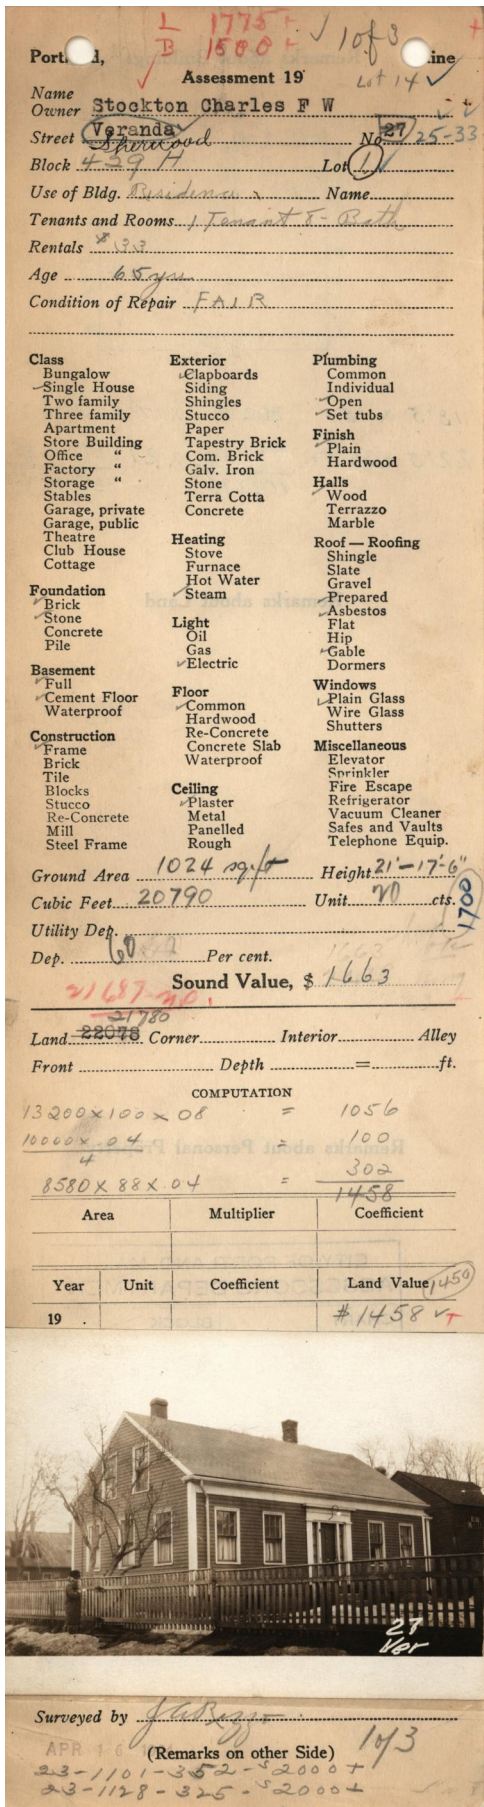 L 1775 +
B 1500 +
1 of 3
Portland, Maine
Assessment 19
Lot 14
Name
Owner Stockton Charles F W
Street Veranda No 27 25-33
Sherwood
Block 429 H Lot 1
Use of Bldg. Residence Name
Tenants and Rooms 1 Tenant 8 - Bath
Rentals $33
Age 65 yrs
Condition of Repair FAIR
Class
Bungalow
Single House
Two family
Three family
Apartment
Store Building
Office "
Factory "
Storage "
Stables
Garage, private
Garage, public
Theatre
Club House
Cottage
Foundation
Brick
Stone
Concrete
Pile
Basement
Full
Cement Floor
Waterproof
Construction
Frame
Brick
Tile
Blocks
Stucco
Re-Concrete
Mill
Steel Frame
Exterior
Clapboards
Siding
Shingles
Stucco
Paper
Tapestry Brick
Com. Brick
Galv. Iron
Stone
Terra Cotta
Concrete
Heating
Stove
Furnace
Hot Water
Steam
Light
Oil
Gas
Electric
Floor
Common
Hardwood
Re-Concrete
Concrete Slab
Waterproof
Ceiling
Plaster
Metal
Panelled
Rough
Plumbing
Common
Individual
Open
Set tubs
Finish
Plain
Hardwood
Halls
Wood
Terrazzo
Marble
Roof — Roofing
Shingle
Slate
Gravel
Prepared
Asbestos
Flat
Hip
Gable
Dormers
Windows
Plain Glass
Wire Glass
Shutters
Miscellaneous
Elevator
Sprinkler
Fire Escape
Refrigerator
Vacuum Cleaner
Safes and Vaults
Telephone Equip.
Ground Area 1024 sq. ft Height 21'-17'-6"
Cubic Feet 20790 Unit 20 cts.
1700
Utility Dep.
Dep. 60 Per cent.
Sound Value, $ 1663
21780
Land 22078 Corner Interior Alley
Front Depth = ft.
COMPUTATION
13200 x 100 x 08 = 1056
10000 x .04 = 100
4
302
8580 x 88 x .04 = 1458
Area Multiplier Coefficient
Year Unit Coefficient Land Value 1450
19 . $1458
27
Ver
Surveyed by
APR 16
(Remarks on other Side) 1 of 3
23-1101-352-$2000+
23-1128-325-$2000+